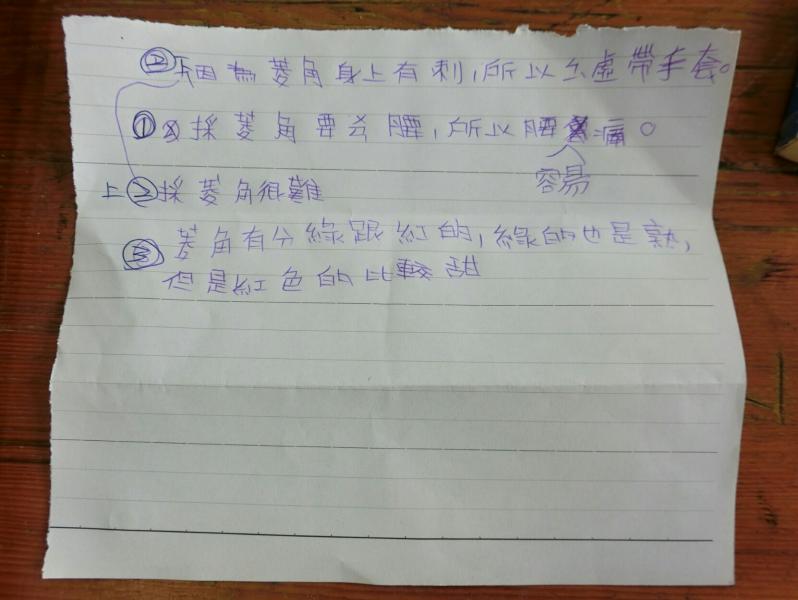 ②因為菱角身上有刺,所以必虛帶手套。
①採菱角要彎腰,所以腰痛。
容易
上②採菱角很難
③菱角有分綠跟紅的,綠的也是熟,
但是紅色的比較甜